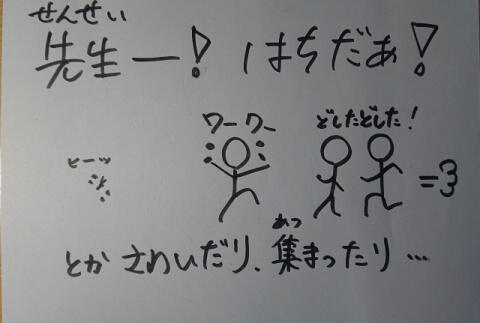 せんせい
先生ー! はちだぁ!
ワーワー どしたどした!
ヒーッ
=3
あつ
とか さわいだり、集まったり…